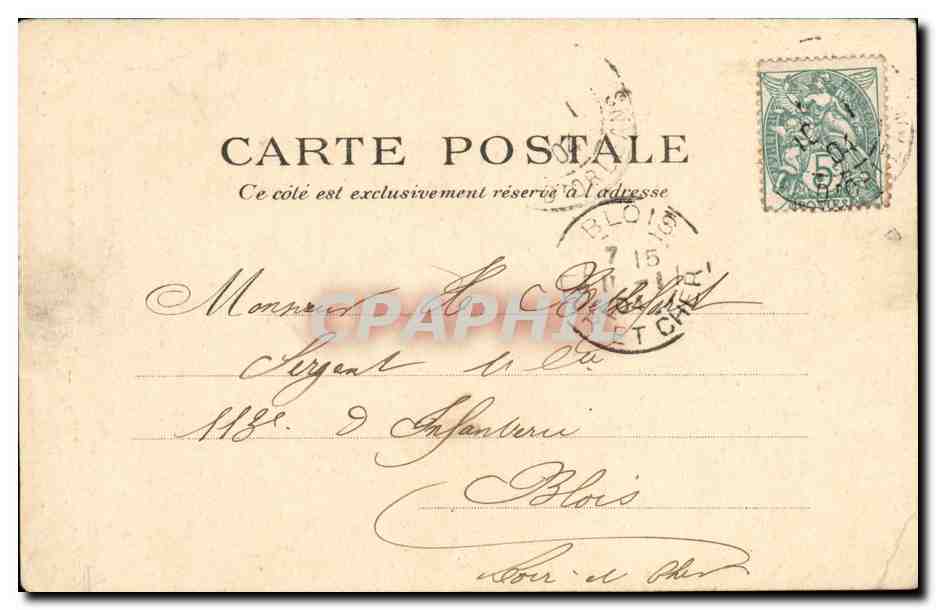 CARTE POSTALE
Ce côté est exclusivement réservé à l'adresse
ORLEANS
BLOIS
7 15
ET CHER
5
POSTES
CPAPHIL
Monsieur H.
Sergent
113e. d'Infanterie
Blois
Loir et Cher